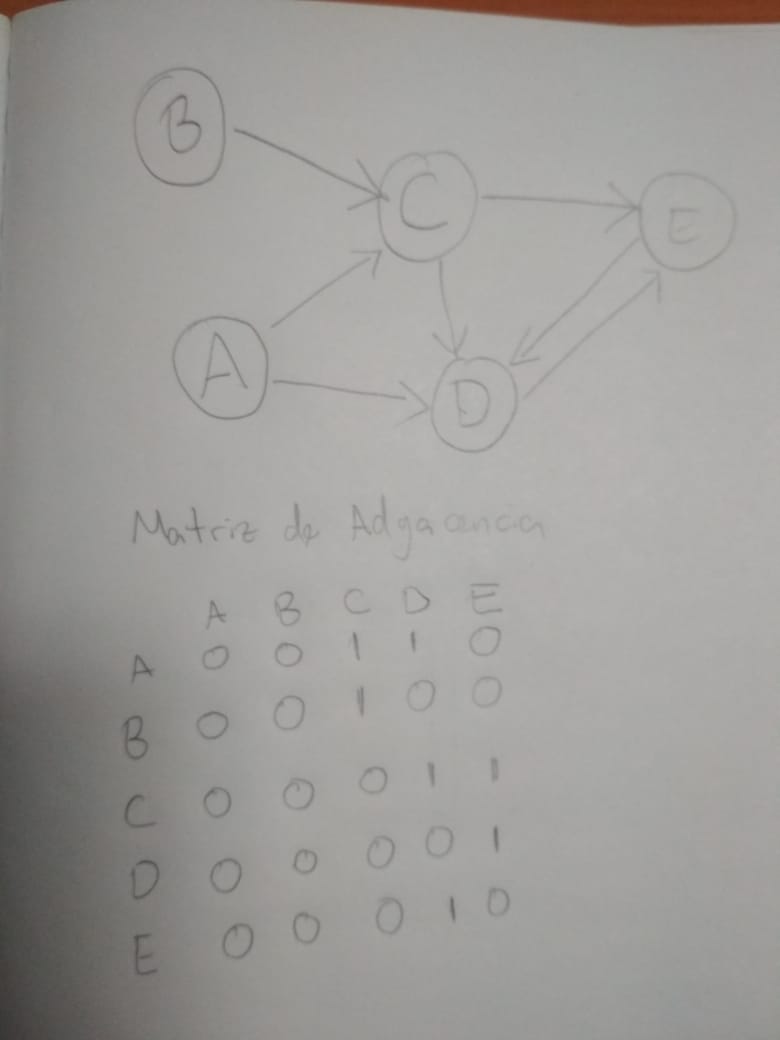 B
C
E
A
D
Matriz de Adgacencia
A B C D E
A 0 0 1 1 0
B 0 0 1 0 0
C 0 0 0 1 1
D 0 0 0 0 1
E 0 0 0 1 0